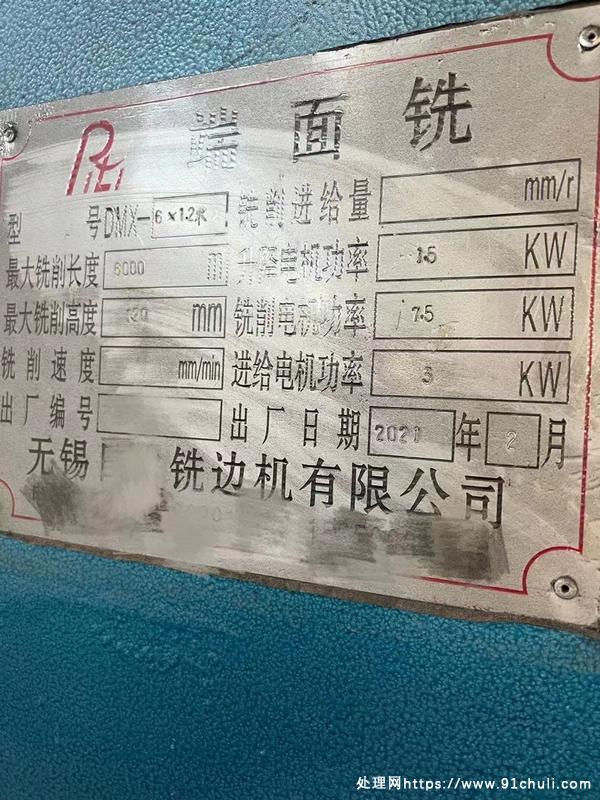 端面铣
型号 DMX-6×1.2米 铣削进给量 mm/r
最大铣削长度 6000 m 升降电机功率 1.5 KW
最大铣削高度 120 mm 铣削电机功率 7.5 KW
铣削速度 mm/min 进给电机功率 3 KW
出厂编号 出厂日期 2021 年 2 月
无锡 铣边机有限公司
处理网https://www.91chuli.com